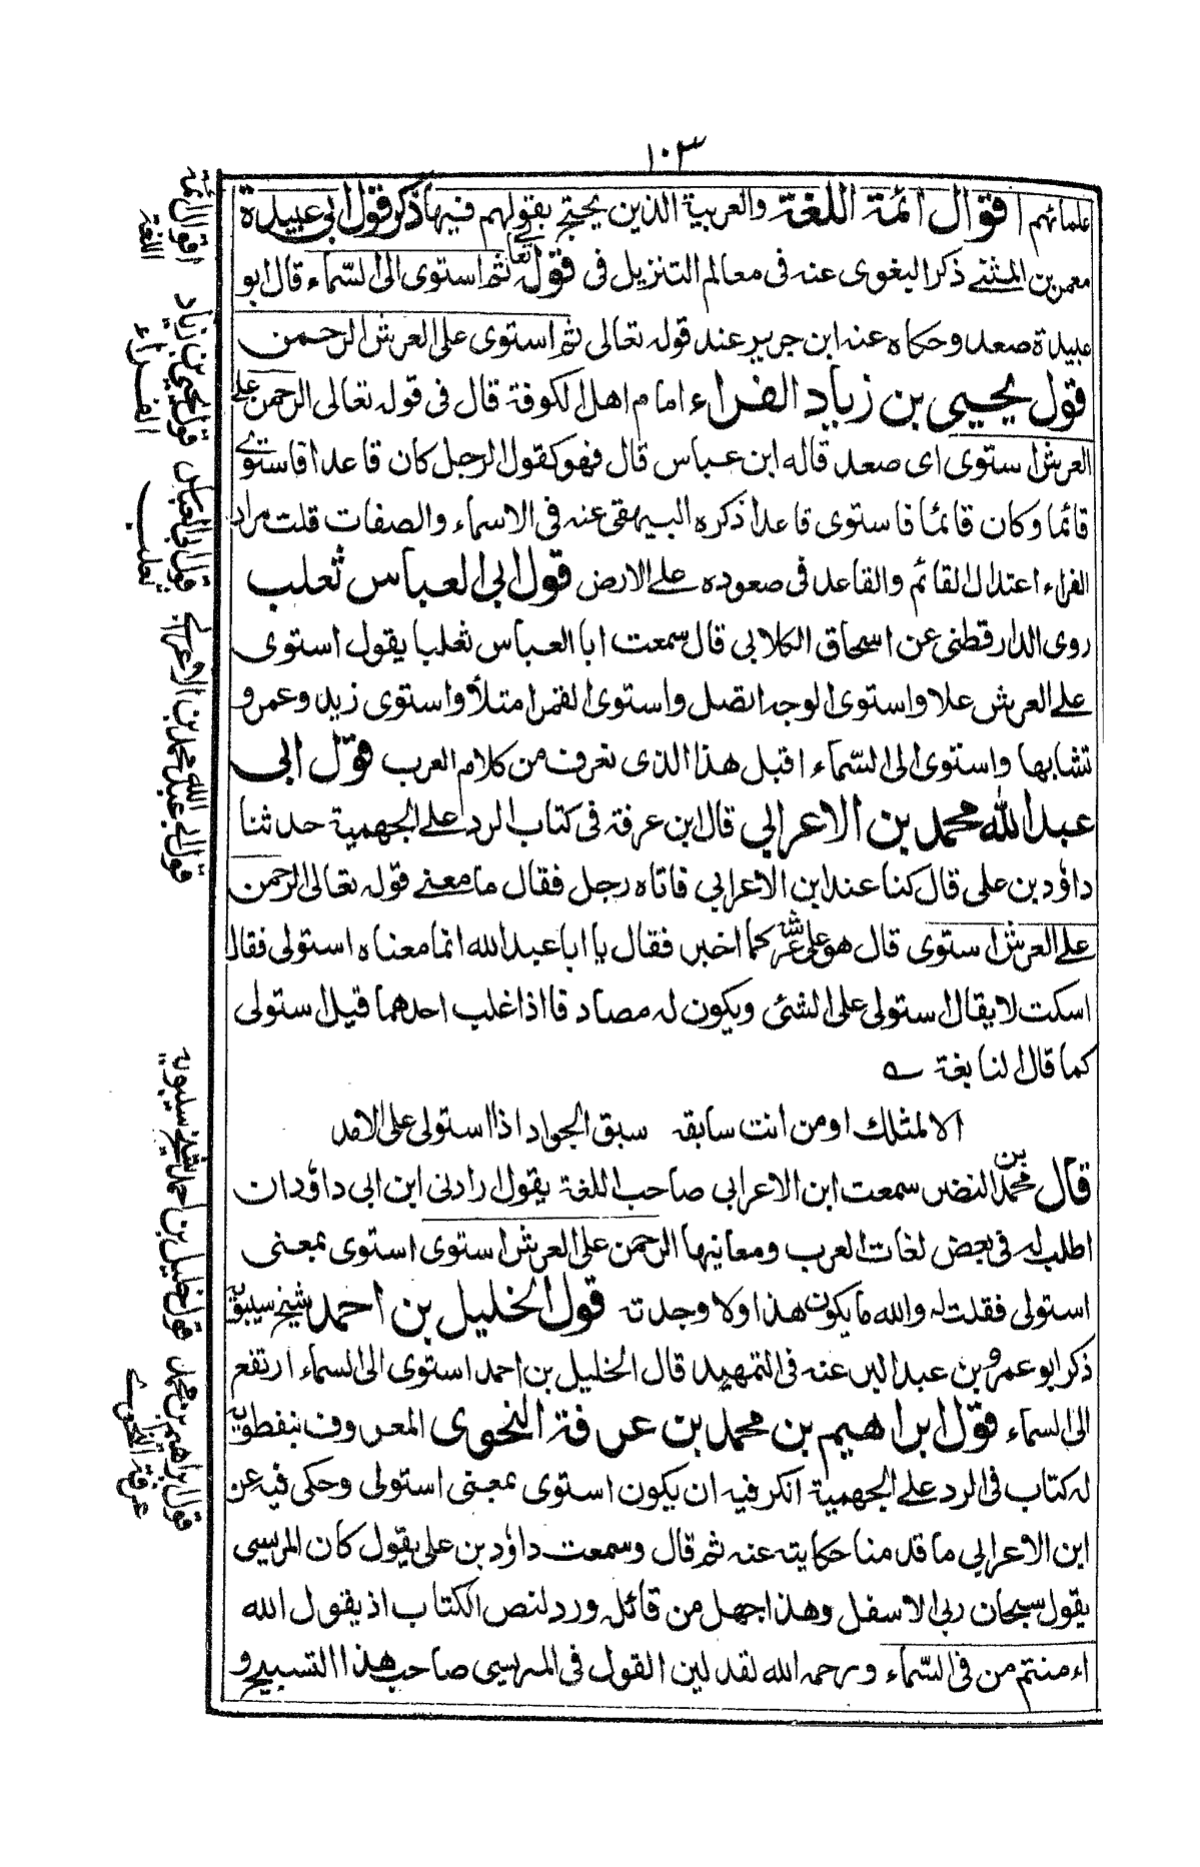 ١٠٣
علمائهم اقوال ائمة اللغة والعربية الذين يحتج بقولهم فيها ذكر قول ابى عبيدة
معمر بن المثنے ذكر البغوى عنه فى معالم التنزيل فى قوله تعا ثم استوى الى السّماء قال ابو
عبيدة صعد وحكاه عنه ابن جرير عند قوله تعالى ثم استوى على العرش الرحمن
قول يحيى بن زياد الفراء امام اهل الكوفة قال فى قوله تعالى الرحمن على
العرش استوى اى صعد قاله ابن عباس قال فهو كقول الرجل كان قاعدا فاستوے
قائما وكان قائما فاستوى قاعدا ذكره البيهقى عنه فى الاسماء والصفات قلت مراد
الفراء اعتدال القائم والقاعد فى صعوده على الارض قول ابى العباس ثعلب
روى الدارقطنى عن اسحاق الكلابى قال سمعت ابا العباس ثعلبا يقول استوى
على العرش علا واستوى الوجه اتصل واستوى القمر امتلأ واستوى زيد وعمرو
تشابها واستوى الى السّماء اقبل هذا الذى نعرف من كلام العرب قول ابى
عبد الله محمد بن الاعرابى قال ابن عرفة فى كتاب الرد على الجهمية حدثنا
داؤد بن على قال كنا عند ابن الاعرابى فاتاه رجل فقال ما معنے قوله تعالى الرحمن
على العرش استوى قال هو على عرشه كما اخبر فقال يا ابا عبد الله انما معناه استولى فقال
اسكت لا يقال استولى على الشئى ويكون له مضاد فااذا غلب احدهما قيل استولى
كما قال النابغة ؎
الا لمثلك او من انت سابقه سبق الجواد اذا استولى على الامد
قال محمد بن النضر سمعت ابن الاعرابى صاحب اللغة يقول ارادنى ابن ابى داؤد ان
اطلب له فى بعض لغات العرب ومعانيها الرحمن على العرش استوى استوى بمعنى
استولى فقلت له والله ما يكون هذا ولا وجدته قول الخليل بن احمد شيخ سيبويه
ذكر ابو عمرو بن عبد البر عنه فى التمهيد قال الخليل بن احمد استوى الى السماء ارتفع
الى السماء قول ابراهيم بن محمد بن عرفة النحوى المعروف بنفطويه
له كتاب فى الرد على الجهمية انكر فيه ان يكون استوى بمعنى استولى وحكى فيه عن
ابن الاعرابى ما قدمنا حكايته عنه ثم قال وسمعت داؤد بن على يقول كان المريسى
يقول سبحان ربى الاسفل وهذا جهل من قائله ورد لنص الكتاب اذ يقول الله
اءمنتم من فى السّماء ورحمه الله لقد لين القول فى المريسى صاحب هذا التسبيح و
اقوال ائمة
اللغة
قول يحيى بن زياد
الفراء
قول ابى العباس
ثعلب
قول ابى عبد الله محمد بن الاعرابى
قول خليل بن احمد شيخ سيبويه
قول ابراهيم بن محمد
عرفة النحوے